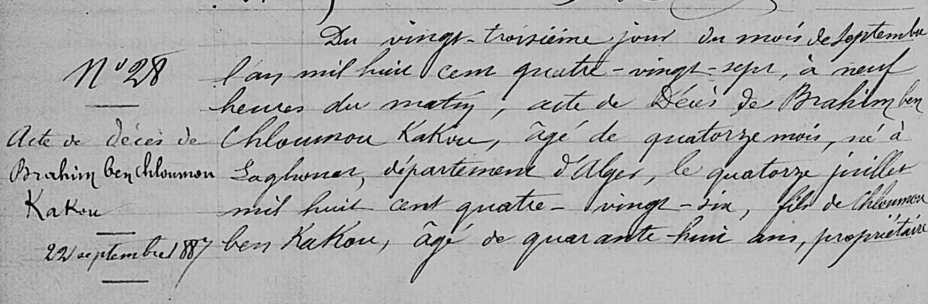 N° 28
Acte de décès de
Brahim ben Chloumou
Kakou
22 septembre 1887
Du vingt-troisième jour du mois de Septembre
l'an mil huit cent quatre-vingt-sept, à neuf
heures du matin, acte de Décès de Brahim ben
Chloumou Kakou, âgé de quatorze mois, né à
Laghouat, département d'Alger, le quatorze juillet
mil huit cent quatre-vingt-six, fils de Chloumou
ben Kakou, âgé de quarante-huit ans, propriétaire